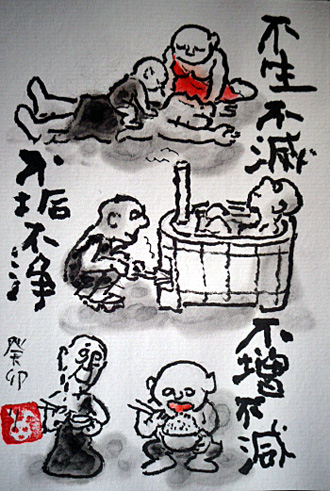 不生不滅
不垢不浄
不増不減
癸卯